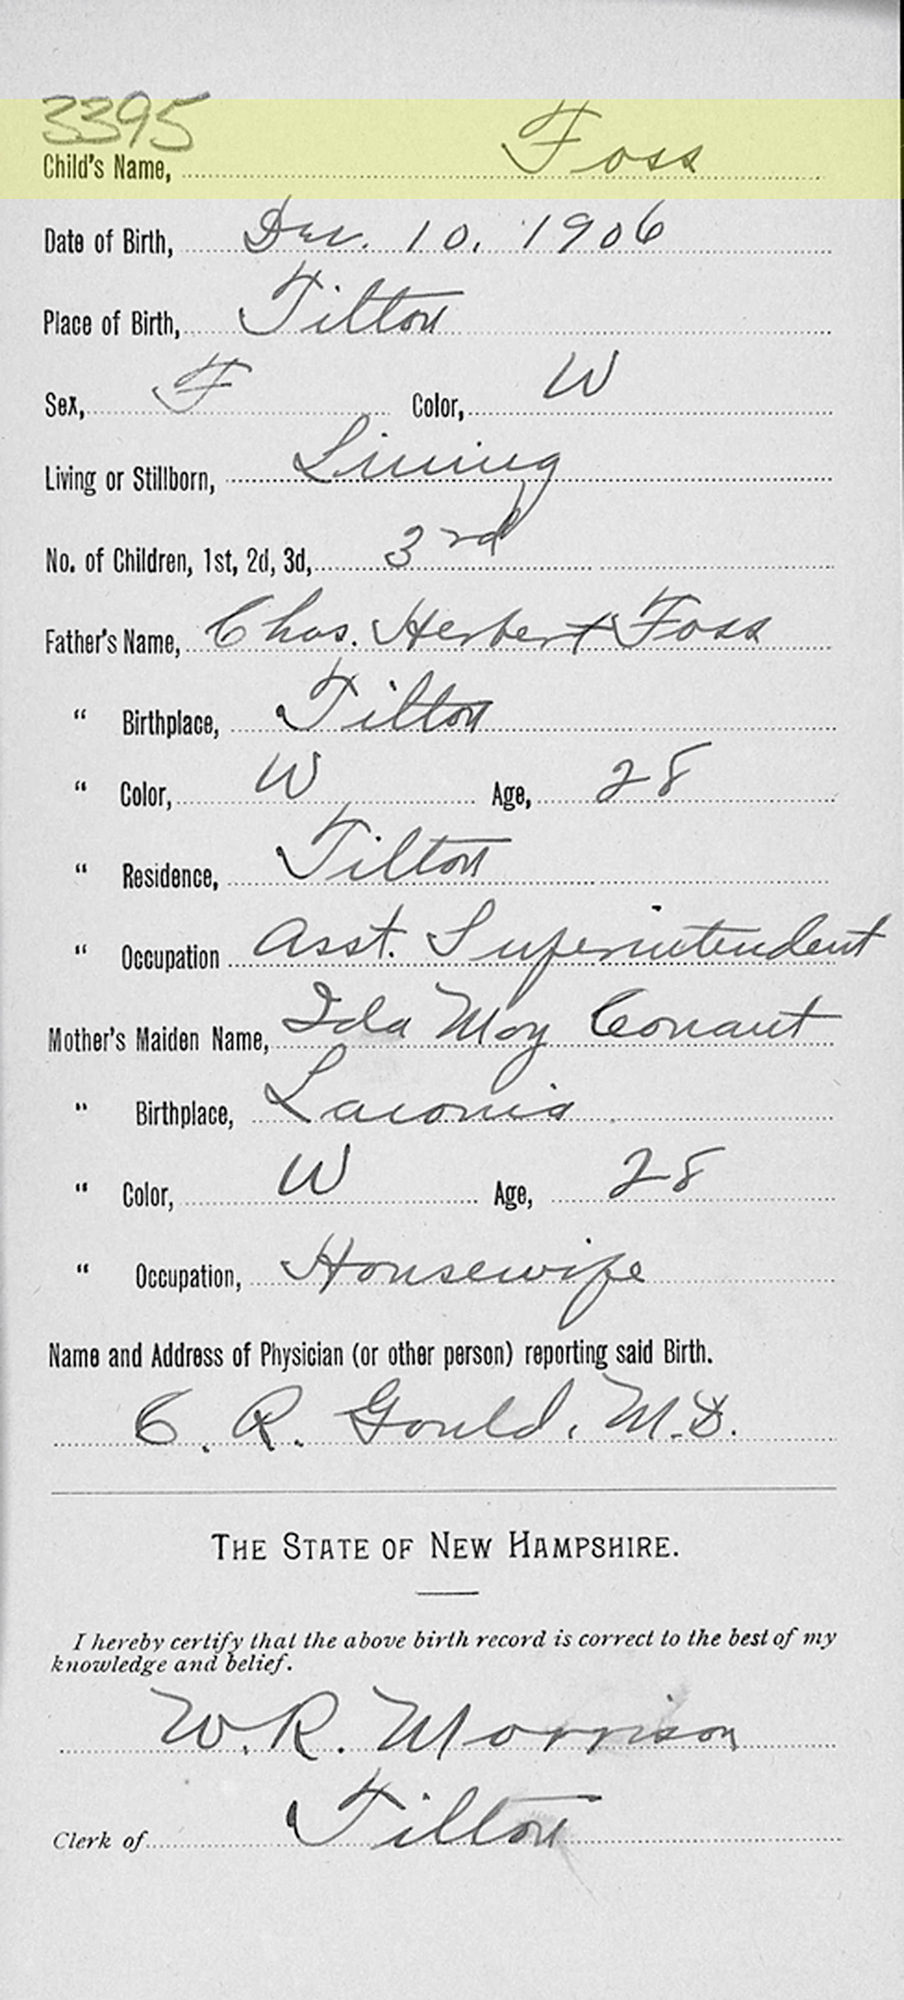 3395
Child's Name, Foss
Date of Birth, Dec. 10, 1906
Place of Birth, Tilton
Sex, F Color, W
Living or Stillborn, Living
No. of Children, 1st, 2d, 3d, 3rd
Father's Name, Chas. Herbert Foss
" Birthplace, Tilton
" Color, W Age, 28
" Residence, Tilton
" Occupation Asst. Superintendent
Mother's Maiden Name, Ida May Conant
" Birthplace, Laconia
" Color, W Age, 28
" Occupation, Housewife
Name and Address of Physician (or other person) reporting said Birth.
C. R. Gould, M.D.
THE STATE OF NEW HAMPSHIRE.
I hereby certify that the above birth record is correct to the best of my
knowledge and belief.
W. R. Morrison
Clerk of Tilton